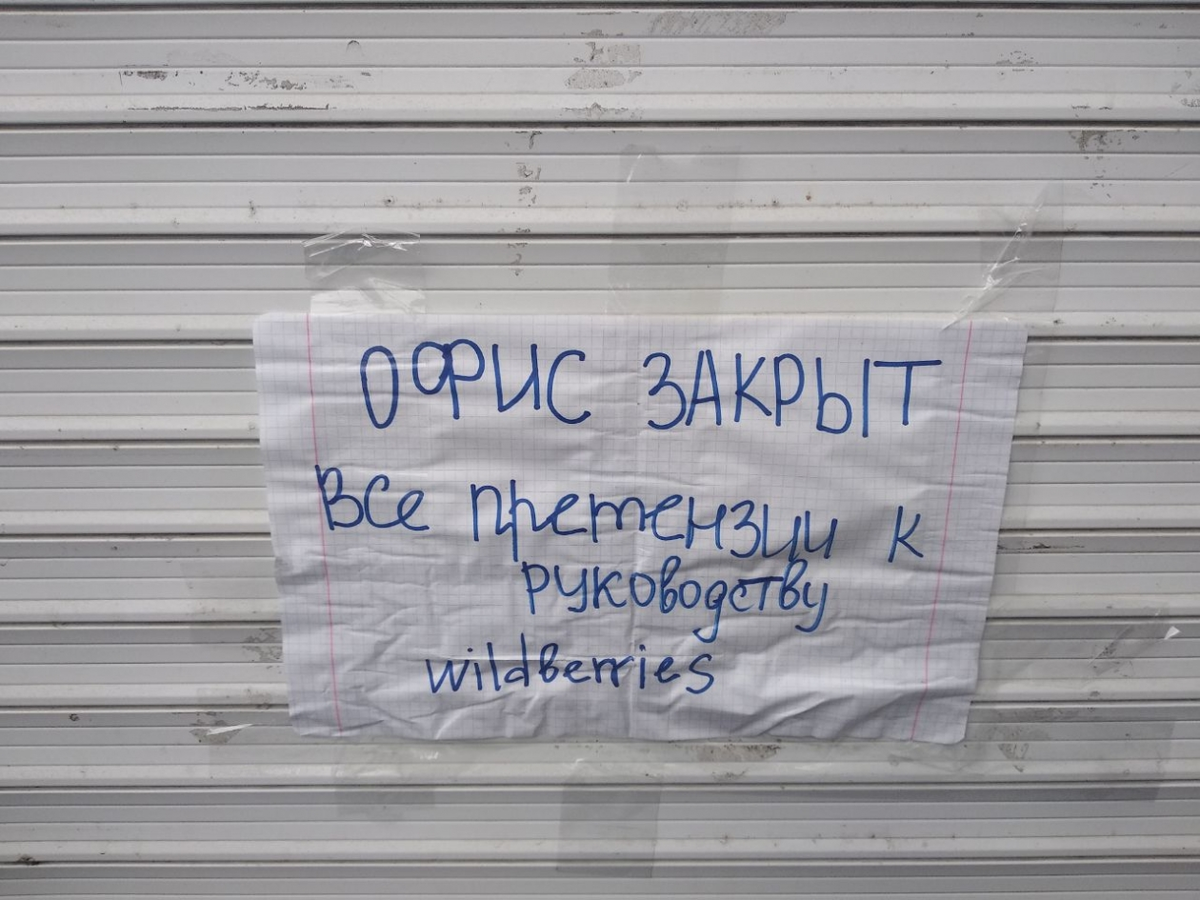 ОФИС ЗАКРЫТ
Все претензии к
руководству
wildberries